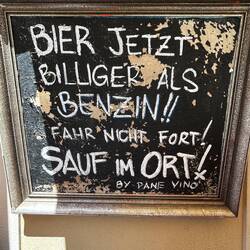 BIER JETZT
BILLIGER ALS
BENZIN!!
FAHR NICHT FORT!
SAUF IM ORT!
BY PANE VINO